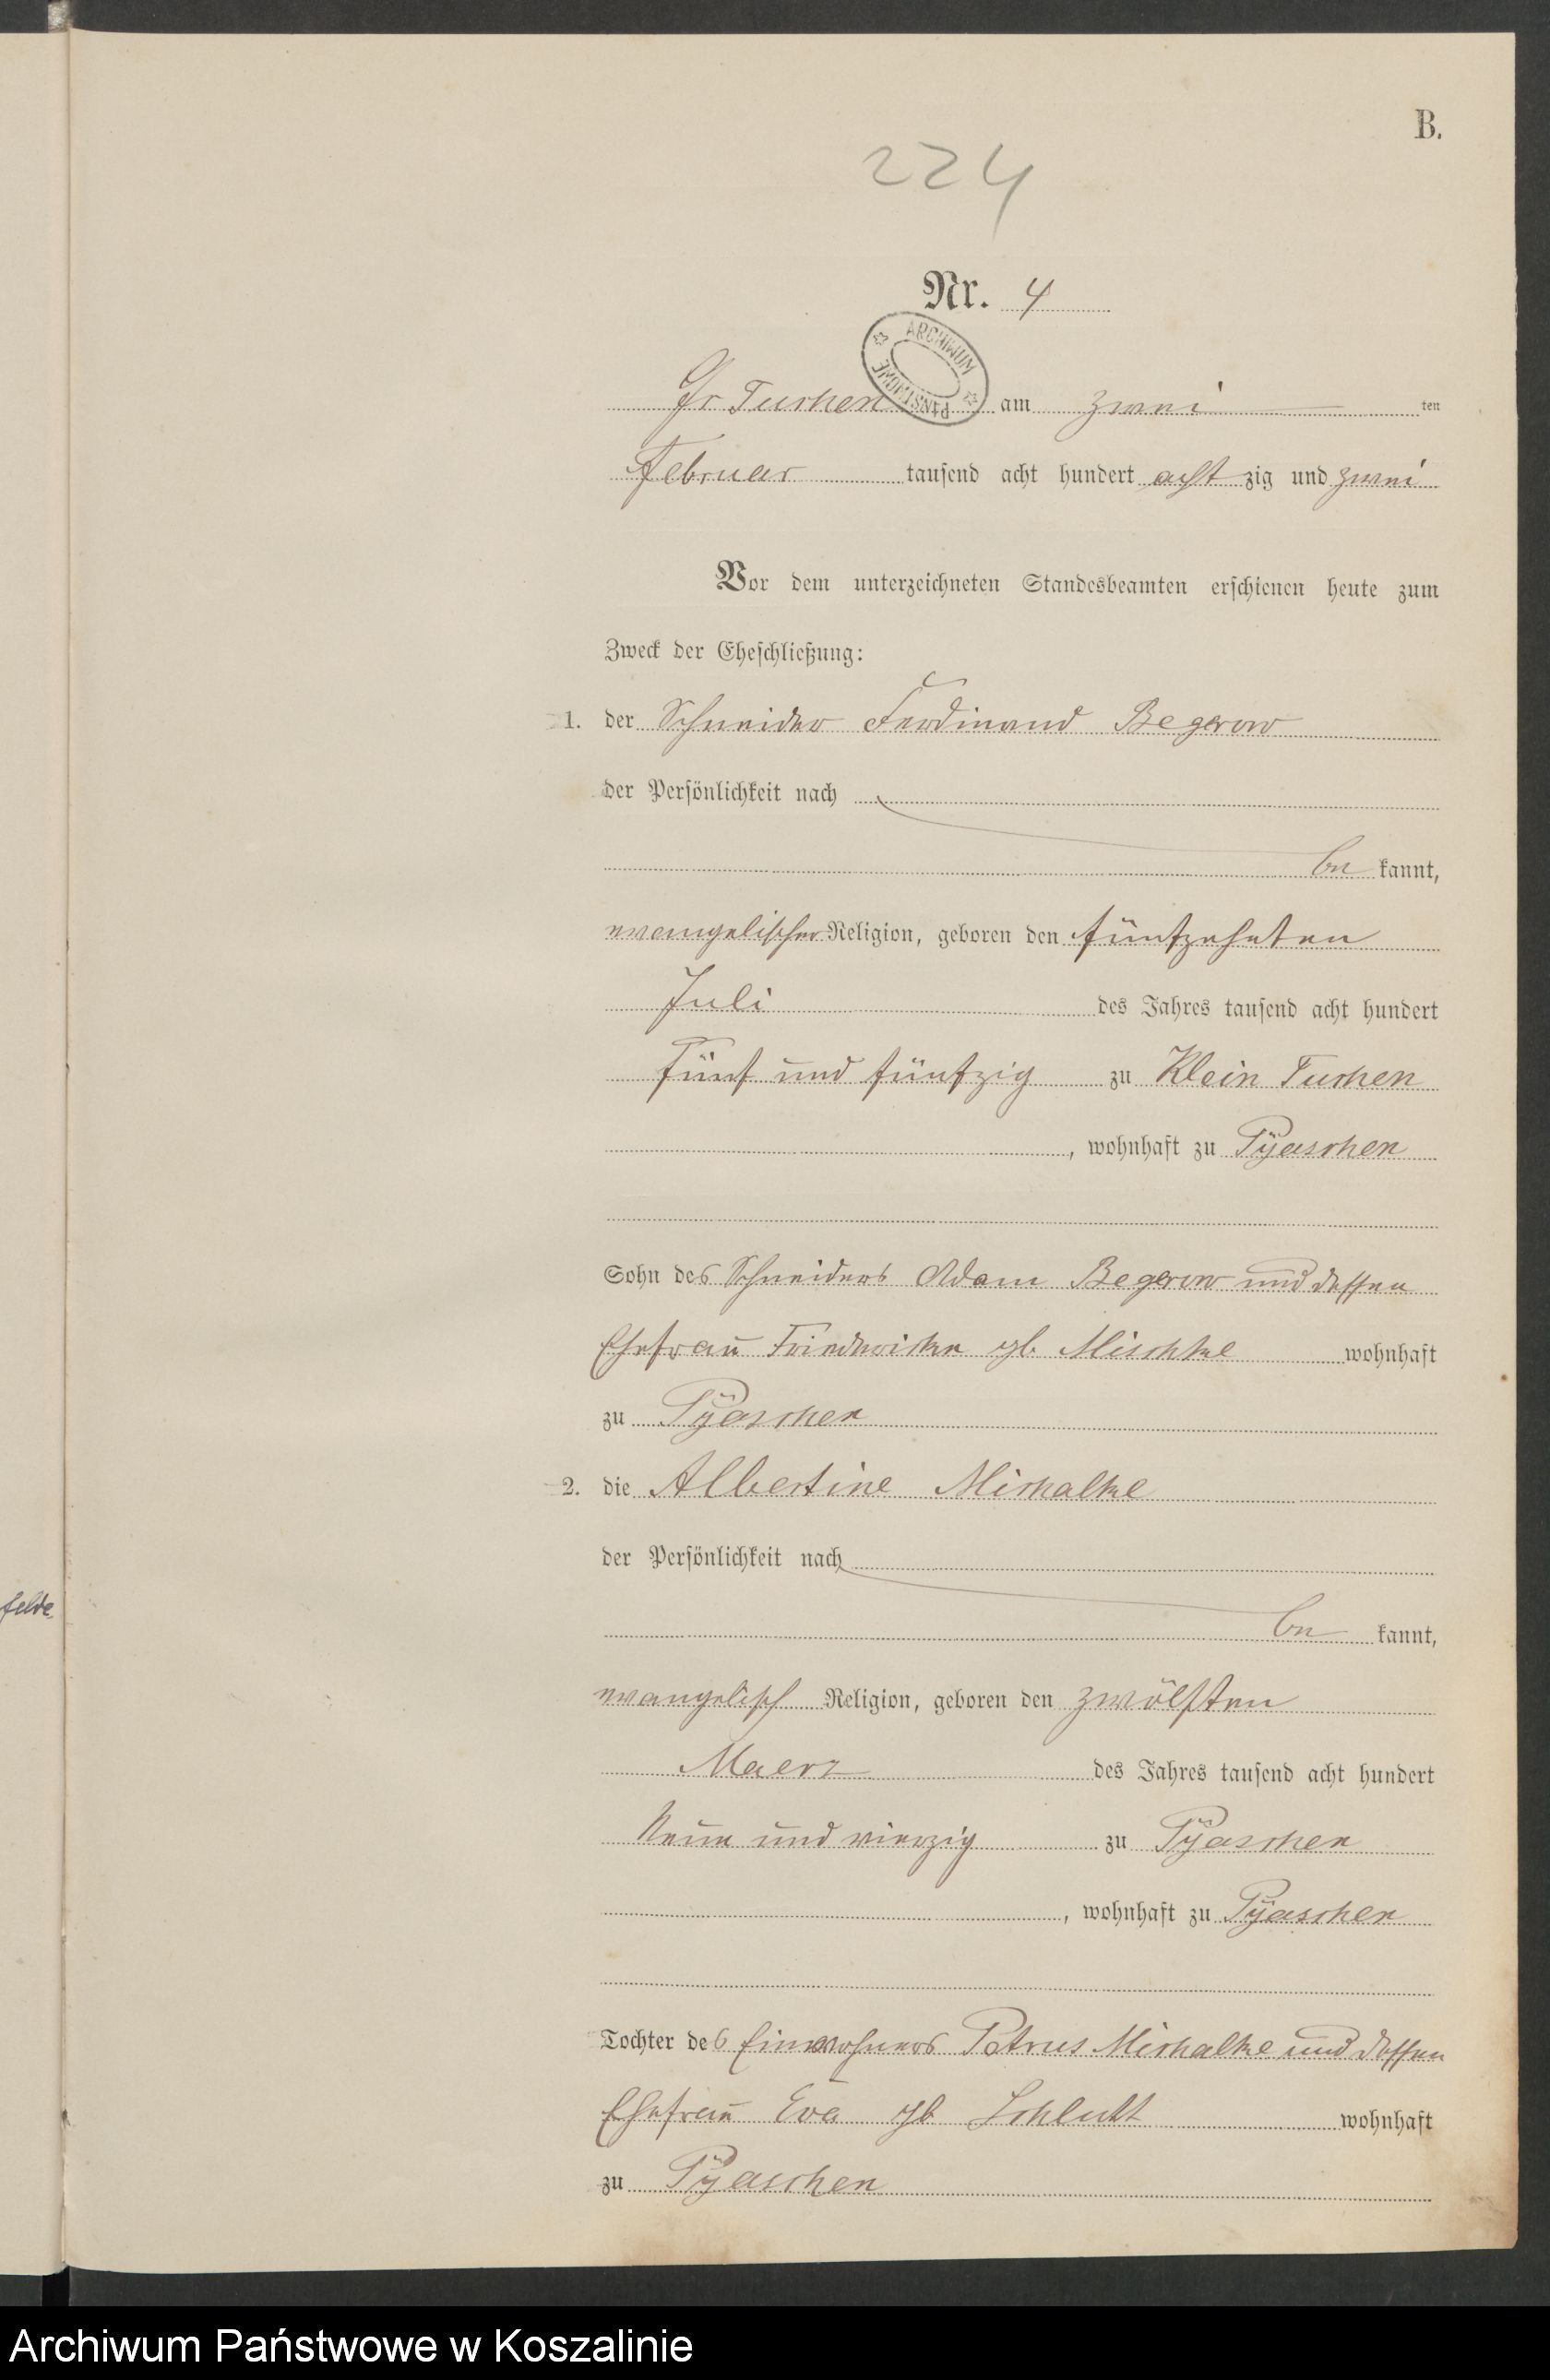 B.
224
Nr. 4
ARCHIWUM PAŃSTWOWE
Gr Tuchen am zwei ten
Februar tausend acht hundert acht zig und zwei
Vor dem unterzeichneten Standesbeamten erschienen heute zum
Zweck der Eheschließung:
1. der Schneider Ferdinand Begerow
der Persönlichkeit nach
be kannt,
evangelischer Religion, geboren den fünfzehnten
Juli des Jahres tausend acht hundert
fünf und fünfzig zu Klein Tuchen
, wohnhaft zu Pyaschen
Sohn des Schneiders Adam Begerow und dessen
Ehefrau Friederike gb. Mischke wohnhaft
zu Pyaschen
2. die Albertine Michalke
der Persönlichkeit nach
be kannt,
felde
evangelisch Religion, geboren den zwölften
Maerz des Jahres tausend acht hundert
Neun und vierzig zu Pyaschen
, wohnhaft zu Pyaschen
Tochter des Einwohners Petrus Michalke und dessen
Ehefrau Eva gb wohnhaft
zu Pyaschen
Archiwum Państwowe w Koszalinie